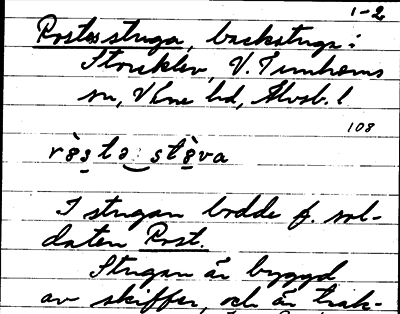 1-2
Rosts stuga, backstuga:
Storeklev, V. Tunhems
sn, Väne hd, Älvsb. l
108
ròs̥tə‿stò̥va
I stugan bodde f. sol-
daten Rost.
Stugan är byggd
av skiffer, och är trak-